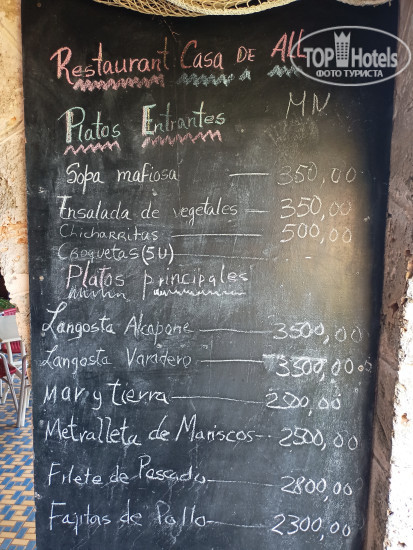 Restaurant Casa DE ALL
TopHotels
ФОТО ТУРИСТА
Platos Entrantes MN
Sopa mafiosa 350,00
Ensalada de vegetales 350,00
Chicharritas 500,00
Croquetas (5U)
Platos principales
Langosta Alcapone 3500,00
Langosta Varadero 3500,00
Mar y tierra 2500,00
Metralleta de Mariscos 2500,00
Filete de Pescado 2800,00
Fajitas de Pollo 2300,00